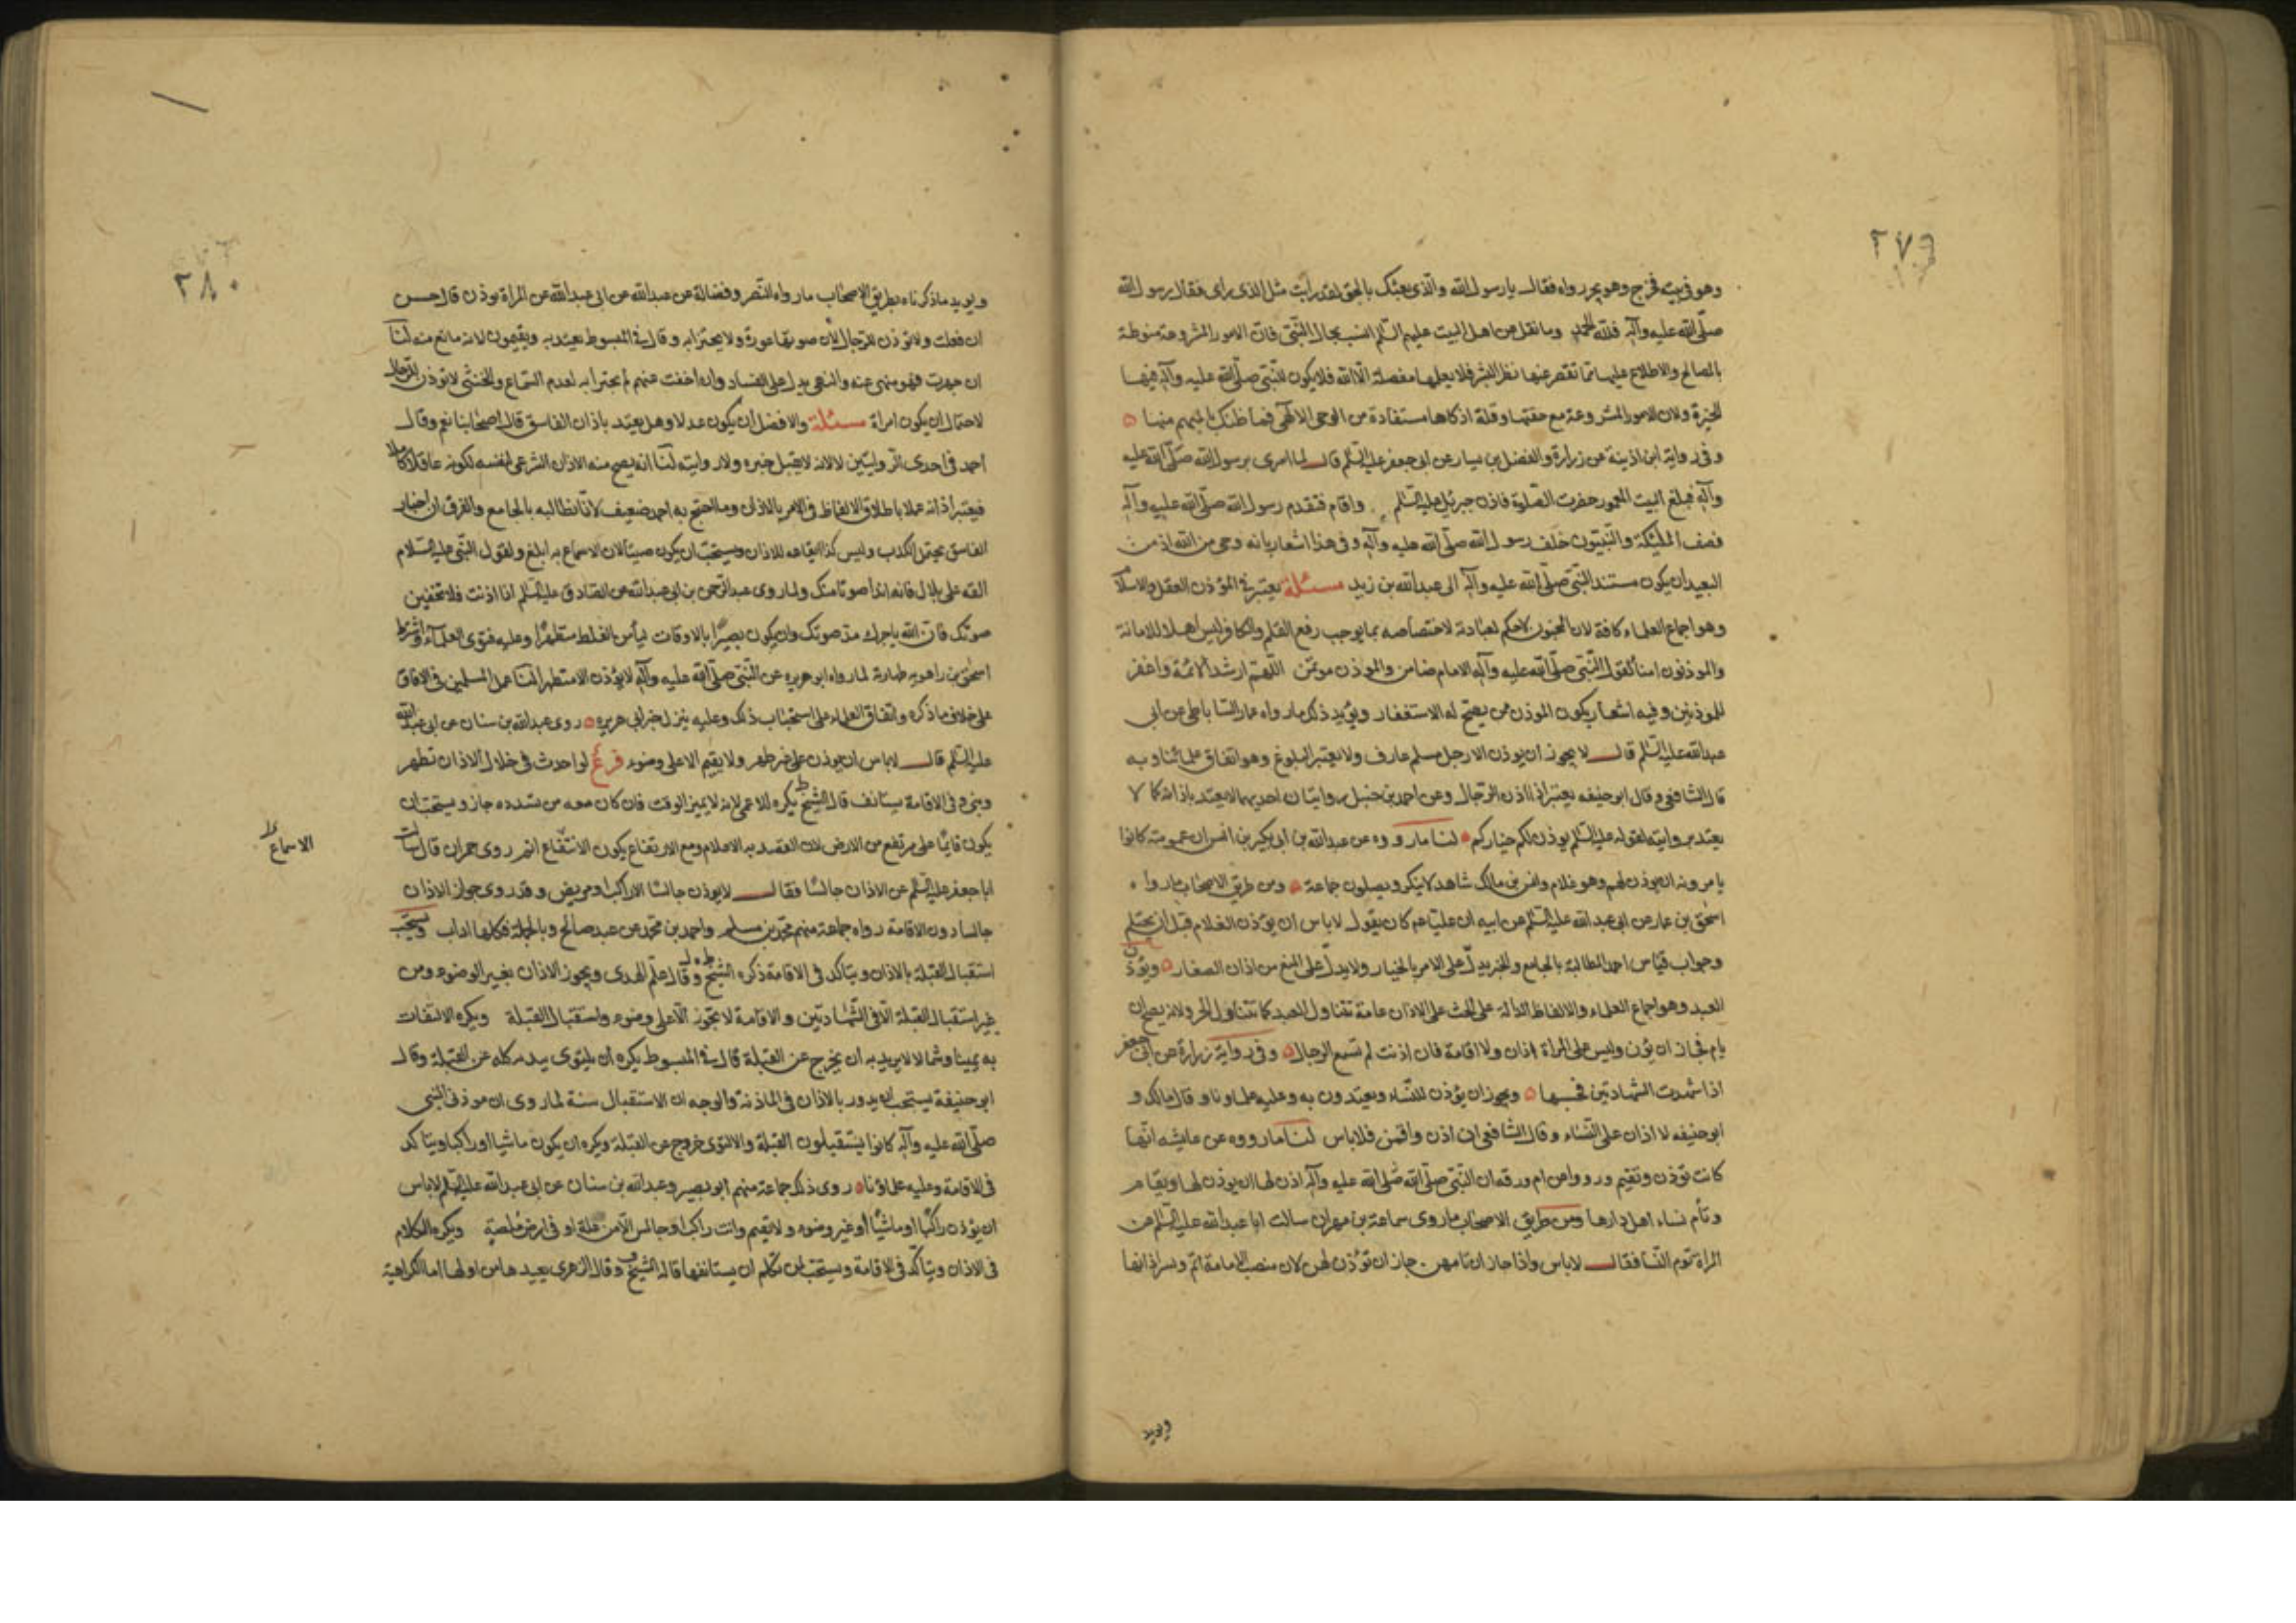 ٢٧٩
وهو في بيته فخرج وهو يجر رداه فقال يا رسول الله والذي بعثك بالحق لقد رايت مثل الذي راى فقال رسول الله
صلّى الله عليه وآله فللّه الحمد وما نقل عن اهل البيت عليهم السّلم انسب بحال النّبيّ فانّ الامور المشروعة منوطة
بالمصالح والاطلاع عليها ممّا تقصر عنها نظر البشر فلا يعلمها مفصلة الّا الله فلا يكون للنّبيّ صلّى الله عليه وآله فيها
الخيرة ولان الامور المشروعة مع خفتها وقلة اذكارها مستفادة من الوحي الالٓهي فما ظنّك بالمهم منها
وفي رواية ابن اذينة عن زرارة والفضل بن يسار عن ابي جعفر عليه السّلم قال لما اسرى برسول الله صلّى الله عليه
وآله فبلغ البيت المعمور حضرت الصّلوة فاذن جبريل عليه السّلم واقام فتقدم رسول الله صلّى الله عليه وآله
فصف الملئكة والنّبيّون خلف رسول الله صلّى الله عليه وآله وفي هذا اشعار بانه وحي من الله اذ من
البعيد ان يكون مستند النّبيّ صلّى الله عليه وآله الى عبدالله بن زيد مسئلة يعتبر في المؤذن العقل والاسلا
وهو اجماع العلماء كافة لان المجنون لا حكم لعبادته لاختصاصه بما يوجب رفع القلم والكافر ليس اهلا للامانة
والموذنون امنا لقول النّبيّ صلّى الله عليه وآله الامام ضامن والموذن موتمن اللّهمّ ارشد الائمة واغفر
للموذنين وفيه اشعار بكون الموذن ممن يصح له الاستغفار ويؤيد ذلك ما رواه عمار الساباطي عن ابي
عبدالله عليه السّلم قال لا يجوز ان يوذن الا رجل مسلم عارف ولا يعتبر البلوغ وهو اتفاق علمائنا وبه
قال الشافعي وقال ابوحنيفه يعتبر اذا اذن الرّجال وعن احمد بن حنبل روايتان احديهما لا يعتد باذانه كما لا
يعتد بروايته لقوله عليه السّلم يوذن لكم خياركم لنا ما رووه عن عبدالله بن ابي بكير بن انس ان عمومته كانوا
يامرونه ان يوذن لهم وهو غلام وانس بن مالك شاهد لا ينكر ويصلون جماعة ومن طريق الاصحاب ما رواه
اسحٰق بن عمار عن ابي عبدالله عليه السّلم عن ابيه ان عليا عم كان يقول لا باس ان يؤذن الغلام قبل ان يحتلم
وجواب قياس احمد المطالبة بالجامع والخبر يدلّ على الامر بالخيار ولا يدلّ على المنع من اذان الصغار ويؤذن
العبد وهو اجماع العلماء والالفاظ الدالة على الحث على الاذان عامة تتناول العبد كما تتناول الحر ولانه يصح ان
يام فجاز ان يؤذن وليس على المراة اذان ولا اقامة فان اذنت لم تسمع الرجال وفي رواية زرارة عن ابي جعفر
اذا شهدت الشهادتين فحسبها ويجوز ان يؤذن للنّساء ويعتدون به وعليه علماونا وقال مالك و
ابوحنيفه لا اذان على النّساء وقال الشافعي ان اذن واقمن فلا باس لنا ما رووه عن عايشه انّها
كانت تؤذن وتقيم ورووا عن ام ورقه ان النّبيّ صلّى الله صلّى الله عليه وآله اذن لها ان يوذن لها ويقام
وتأم نساء اهل دارها ومن طريق الاصحاب ما روى سماعة بن مهران سالت ابا عبدالله عليه السّلم عن
المراة تؤم النّسا فقال لا باس واذا جاز ان تامهن جاز ان تؤذن لهن لان منصب الامامة اتم وتسر اذانها
ويويد
٢٨٠
ويويد ما ذكرناه بطريق الاصحاب ما رواه النّضر وفضالة عن عبدالله عن ابي عبدالله عن المراة توذن قال حسن
ان فعلت ولا توذن للرّجال لان صوتها عورة ولا يجتزا به وقال في المبسوط يعتد به ويقيمون لانه مانع منه لنا
ان جهرت فهو منهي عنه والنهي يدل على الفساد وان اخفت عنهم لم يجتزا به لعدم السّماع والخنثى لا توذن للرّجال
لاحتمال ان يكون امراة مسئلة والافضل ان يكون عدلا وهل يعتد باذان الفاسق قال اصحابنا نعم وقال
احمد في احدى الروايتين لا لانه لا يقبل خبره ولا روايته لنا انه يصح منه الاذان الشرعي لنفسه لكونه عاقلا كاملا
فيعتبر اذانه عملا باطلاق الالفاظ في الامر بالاذان وما احتج به احمد ضعيف لانّا نطالبه بالجامع والفرق ان اخبار
الفاسق يحتمل الكذب وليس كذا ايقاعه للاذان ويستحبّ ان يكون صيّتا لان الاسماع به ابلغ ولقول النّبيّ عليه السّلام
القه على بلال فانه اندا صوتا منك ولما روى عبدالرّحمن بن ابي عبدالله عن الصّادق عليه السّلم اذا اذنت فلا تخفين
صوتك فانّ الله ياجرك مد صوتك وان يكون بصيرًا بالاوقات ليأمن الغلط متطهرًا وعليه فتوى العلماء وشرط
اسحٰق بن راهويه طهارة لما رواه ابوهريره عن النّبيّ صلّى الله عليه وآله لا يؤذن الا متطهر لنا عمل المسلمين في الافاق
على خلاف ما ذكره واتفاق العلماء على استحباب ذلك وعليه ينزل خبر ابي هريره روى عبدالله بن سنان عن ابي عبدالله
عليه السّلم قال لا باس ان يوذن على غير طهر ولا يقيم الا على وضوء فرع لو احدث في خلال الاذان تطهر
وبنى وفي الاقامة يستانف قال الشيخ يكره للاعمى لانه لا يميز الوقت فان كان معه من يسدده جاز ويستحبّ ان
يكون قايمًا على مرتفع من الارض لان القصد به الاعلام ومع الارتفاع يكون الانتفاع اتم روى حمران قال سالت
الاسماع
ابا جعفر عليه السّلم عن الاذان جالسًا فقال لا يوذن جالسًا الا راكب او مريض وقد روى جواز الاذان
جالسا دون الاقامة رواه جماعة منهم محمّد بن مسلم واحمد بن محمّد عن عبد صالح وبالجملة فكلها اداب ويستحب
استقبال القبلة بالاذان ويتاكد في الاقامة ذكره الشيخ وقال علم الهدى ويجوز الاذان بغير الوضوء ومن
غير استقبال القبلة الّا في الشّهادتين والاقامة لا تجوز الّا على وضوء واستقبال القبلة ويكره الالتفات
به يمينا وشمالا لا يريد به ان يخرج عن القبلة قال في المبسوط يكره ان يلتوى ببدنه كله عن القبلة وقال
ابوحنيفة يستحب ان يدور بالاذان في الماذنة والوجه ان الاستقبال سنة لما روى ان موذني النبي
صلّى الله عليه وآله كانوا يستقبلون القبلة والالتوى خروج عن القبلة ويكره ان يكون ماشيا او راكبا ويتاكد
في الاقامة وعليه علماؤنا روى ذلك جماعة منهم ابوبصير وعبدالله بن سنان عن ابي عبدالله عليه السّلم لا باس
ان يؤذن راكبًا او ماشيًا او غير وضوء ولا تقيم وانت راكب او جالس الّا من علة او في ارض ملصة ويكره الكلام
في الاذان ويتأكّد في الاقامة ويستحبّ لمن تكلم ان يستانفها قاله الشيخ وقال الزهري يعيدها من اولها اما الكراهية